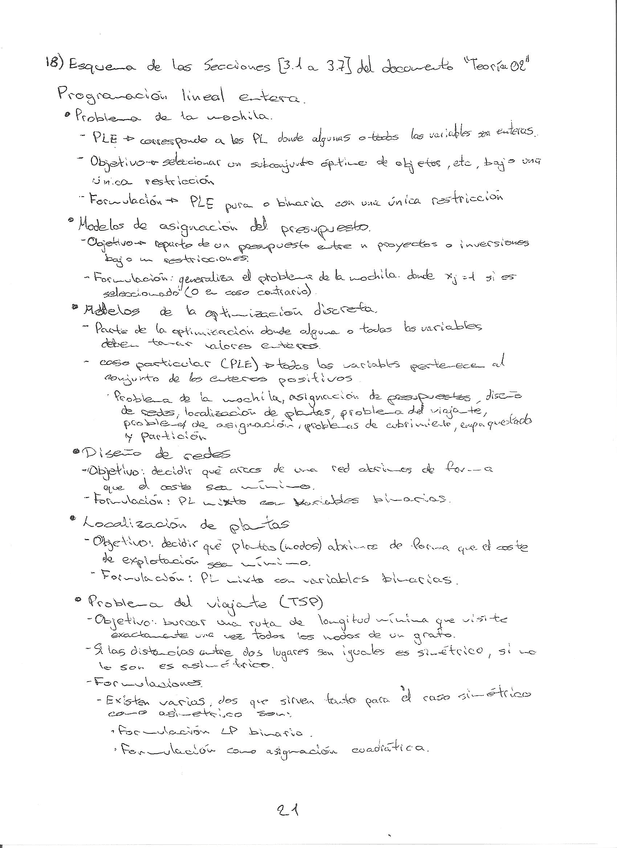 18) Esquema de las Secciones [3.1 a 3.7] del documento "Teoría 02"
Programación lineal entera.
• Problema de la mochila.
- PLE → corresponde a los PL donde algunas o todas las variables sea enteras.
- Objetivo → seleccionar un subconjunto óptimo de objetos, etc, bajo una
única restricción
- Formulación → PLE pura o binaria con una única restricción
• Modelos de asignación del presupuesto.
- Objetivo → reparto de un presupuesto entre n proyectos o inversiones
bajo m restricciones.
- Formulación: generaliza el problema de la mochila. donde xj = 1 si es
seleccionado (0 en caso contrario).
• Modelos de la optimización discreta.
- Parte de la optimización donde alguna o todas las variables
deben tomar valores enteros.
- caso particular (PLE) → todas las variables pertenece al
conjunto de los enteros positivos.
· Problema de la mochila, asignación de presupuestos, diseño
de redes, localización de plantas, problema del viajante,
problema de asignación, problemas de cubrimiento, empaquetado
y Partición
• Diseño de redes
- Objetivo: decidir qué arcos de una red abrimos de forma
que el coste sea mínimo.
- Formulación: PL mixto con variables binarias.
• Localización de plantas
- Objetivo: decidir qué plantas (nodos) abrimos de forma que el coste
de explotación sea mínimo.
- Formulación: PL mixto con variables binarias.
• Problema del viajante (TSP)
- Objetivo: buscar una ruta de longitud mínima que visite
exactamente una vez todos los nodos de un grafo.
- Si las distancias entre dos lugares son iguales es simétrico, si no
lo son es asimétrico.
- Formulaciones.
- Existen varias, dos que sirven tanto para el caso simétrico
como asimétrico son:
· Formulación LP binario.
· Formulación como asignación cuadrática.
21